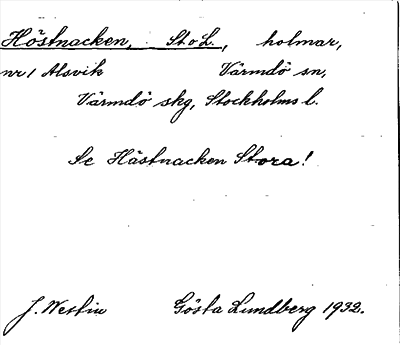 Höstnacken, St o L., holmar,
nr 1 Alsvik Värmdö sn,
Värmdö skg, Stockholms l.
Se Hästnacken Stora!
J. Westin Gösta Lundberg 1932.